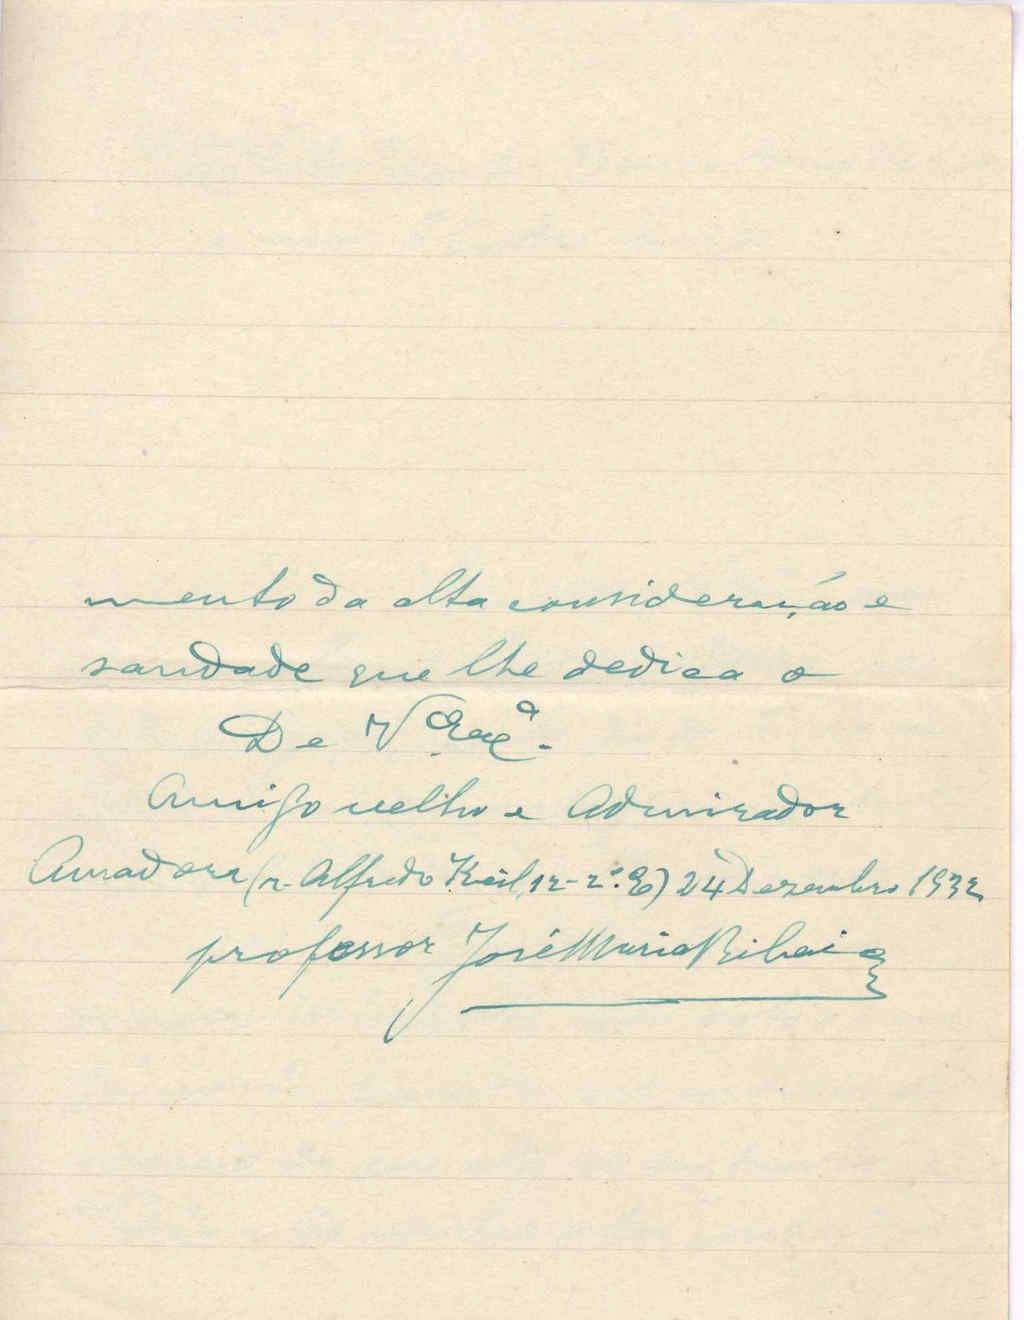 mento da alta consideração e
saudade que lhe dedica o
De V. Exc.ª
Amigo velho e Admirador
Amadora (r. Alfredo Keil, 12-2º. E) 24 Dezembro 1932
professor José Maria Ribeiro